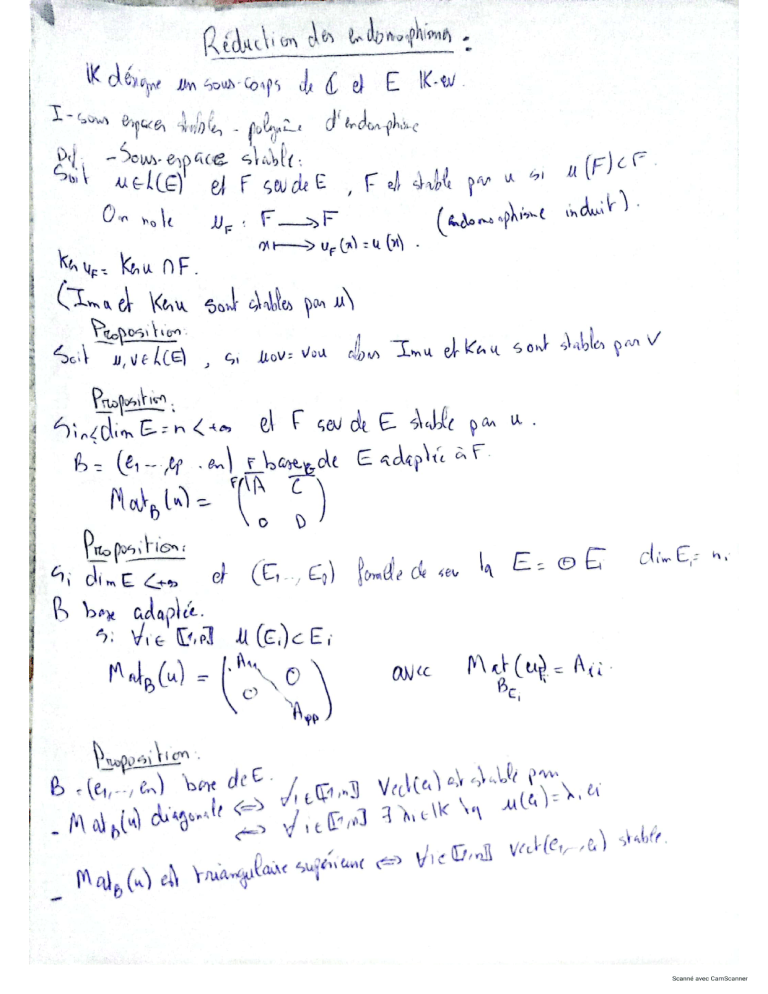 Réduction des endomorphismes :
K désigne un sous-corps de ℂ et E K-ev.
I- sous espaces stables - polynôme d'endomorphisme
Def. - Sous-espace stable:
Soit u∈L(E) et F sev de E , F est stable par u si u(F)⊂F.
On note u_F : F ⟶ F (endomorphisme induit).
x ⟼ u_F(x) = u(x) .
Ker u_F = Ker u ∩ F.
(Im u et Ker u sont stables par u)
Proposition:
Soit u,v∈L(E) , si uov = vou alors Im u et Ker u sont stables par v
Proposition:
Si dim E = n < +∞ et F sev de E stable par u.
B = (e1 --, ep . en) base de E adaptée à F.
Mat_B(u) = ( A C
0 D )
Proposition:
Si dim E < +∞ et (E1 --, Ep) famille de sev tq E = ⊕ Ei dim Ei = ni
B base adaptée.
Si ∀i∈⟦1,p⟧ u(Ei)⊂Ei
Mat_B(u) = ( A11 0 avec Mat (u_Ei) = Aii.
0 App ) B_Ei
Proposition:
B = (e1, --, en) base de E.
- Mat_B(u) diagonale ⟺ ∀i∈⟦1,n⟧ Vect(ei) est stable par
⟺ ∀i∈⟦1,n⟧ ∃ λi∈K tq u(ei) = λi ei
- Mat_B(u) est triangulaire supérieure ⟺ ∀i∈⟦1,n⟧ Vect(e1,--,ei) stable.
Scanné avec CamScanner